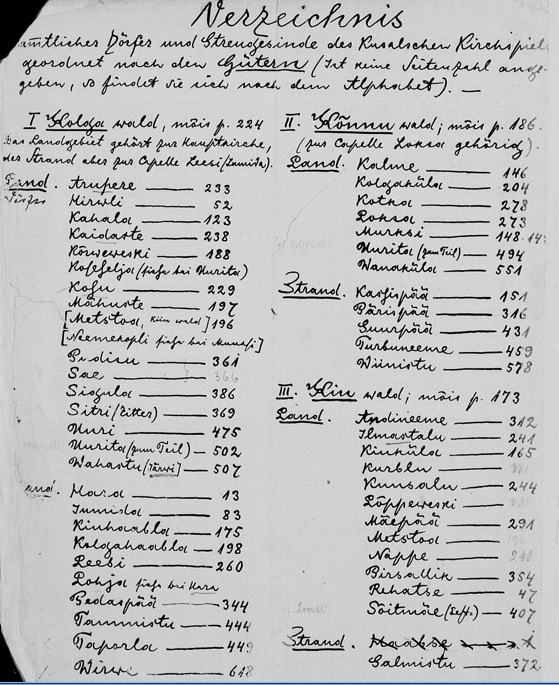 Verzeichnis
sämtlicher Dörfer und Streugesinde des Kusalschen Kirchspiels
geordnet nach den Gütern (Ist keine Seitenzahl ange-
geben, so findet sie sich nach dem Alphabet). —
I Kolga wald, mõis p. 224
Das Landgebiet gehört zur Hauptkirche,
der Strand aber zur Capelle Leesi (Juminda).
Land. Arupere — 233
Hirwli — 52
Kahala — 123
Kaidaste — 238
Kõrweweski — 188
Kosesselja (siehe bei Uurita)
Kosu — 229
Mähuste — 197
[Metstoa, Kiiu wald] 196
[Neemekopli siehe bei Muuksi]
Pudisu — 361
Sae — 366
Sigula — 386
Sitri (Zitter) — 369
Uuri — 475
Uurita (zum Teil) — 502
Wahastu (Järwi) — 507
and. Hara — 13
Juminda — 83
Kiuhaabla — 175
Kolgahaabla — 198
Leesi — 260
Lohja siehe bei Hara
Pedaspää — 344
Tammistu — 444
Tapurla — 449
Wirwe — 618
II. Kõnnu wald; mõis p. 186.
(zur Capelle Loksa gehörig).
Land. Kalme — 146
Kolgaküla — 204
Kotka — 278
Loksa — 273
Murksi — 148
Uurita (zum Teil) — 494
Wanaküla — 551
Strand. Kasispää — 151
Pärispää — 316
Suurpää — 431
Turbuneeme — 459
Wiinistu — 578
III. Kiu wald; mõis p. 173
Land. Andineeme — 312
Ilmastalu — 241
Kiuküla — 165
Kurblu
Kuusalu — 244
Lõppeweski
Mäepää — 291
Metstoa
Nappe — 240
Pirsallik — 354
Rehatse — 47
Sõitmäe — 407
Strand. Haabse
Salmistu — 372